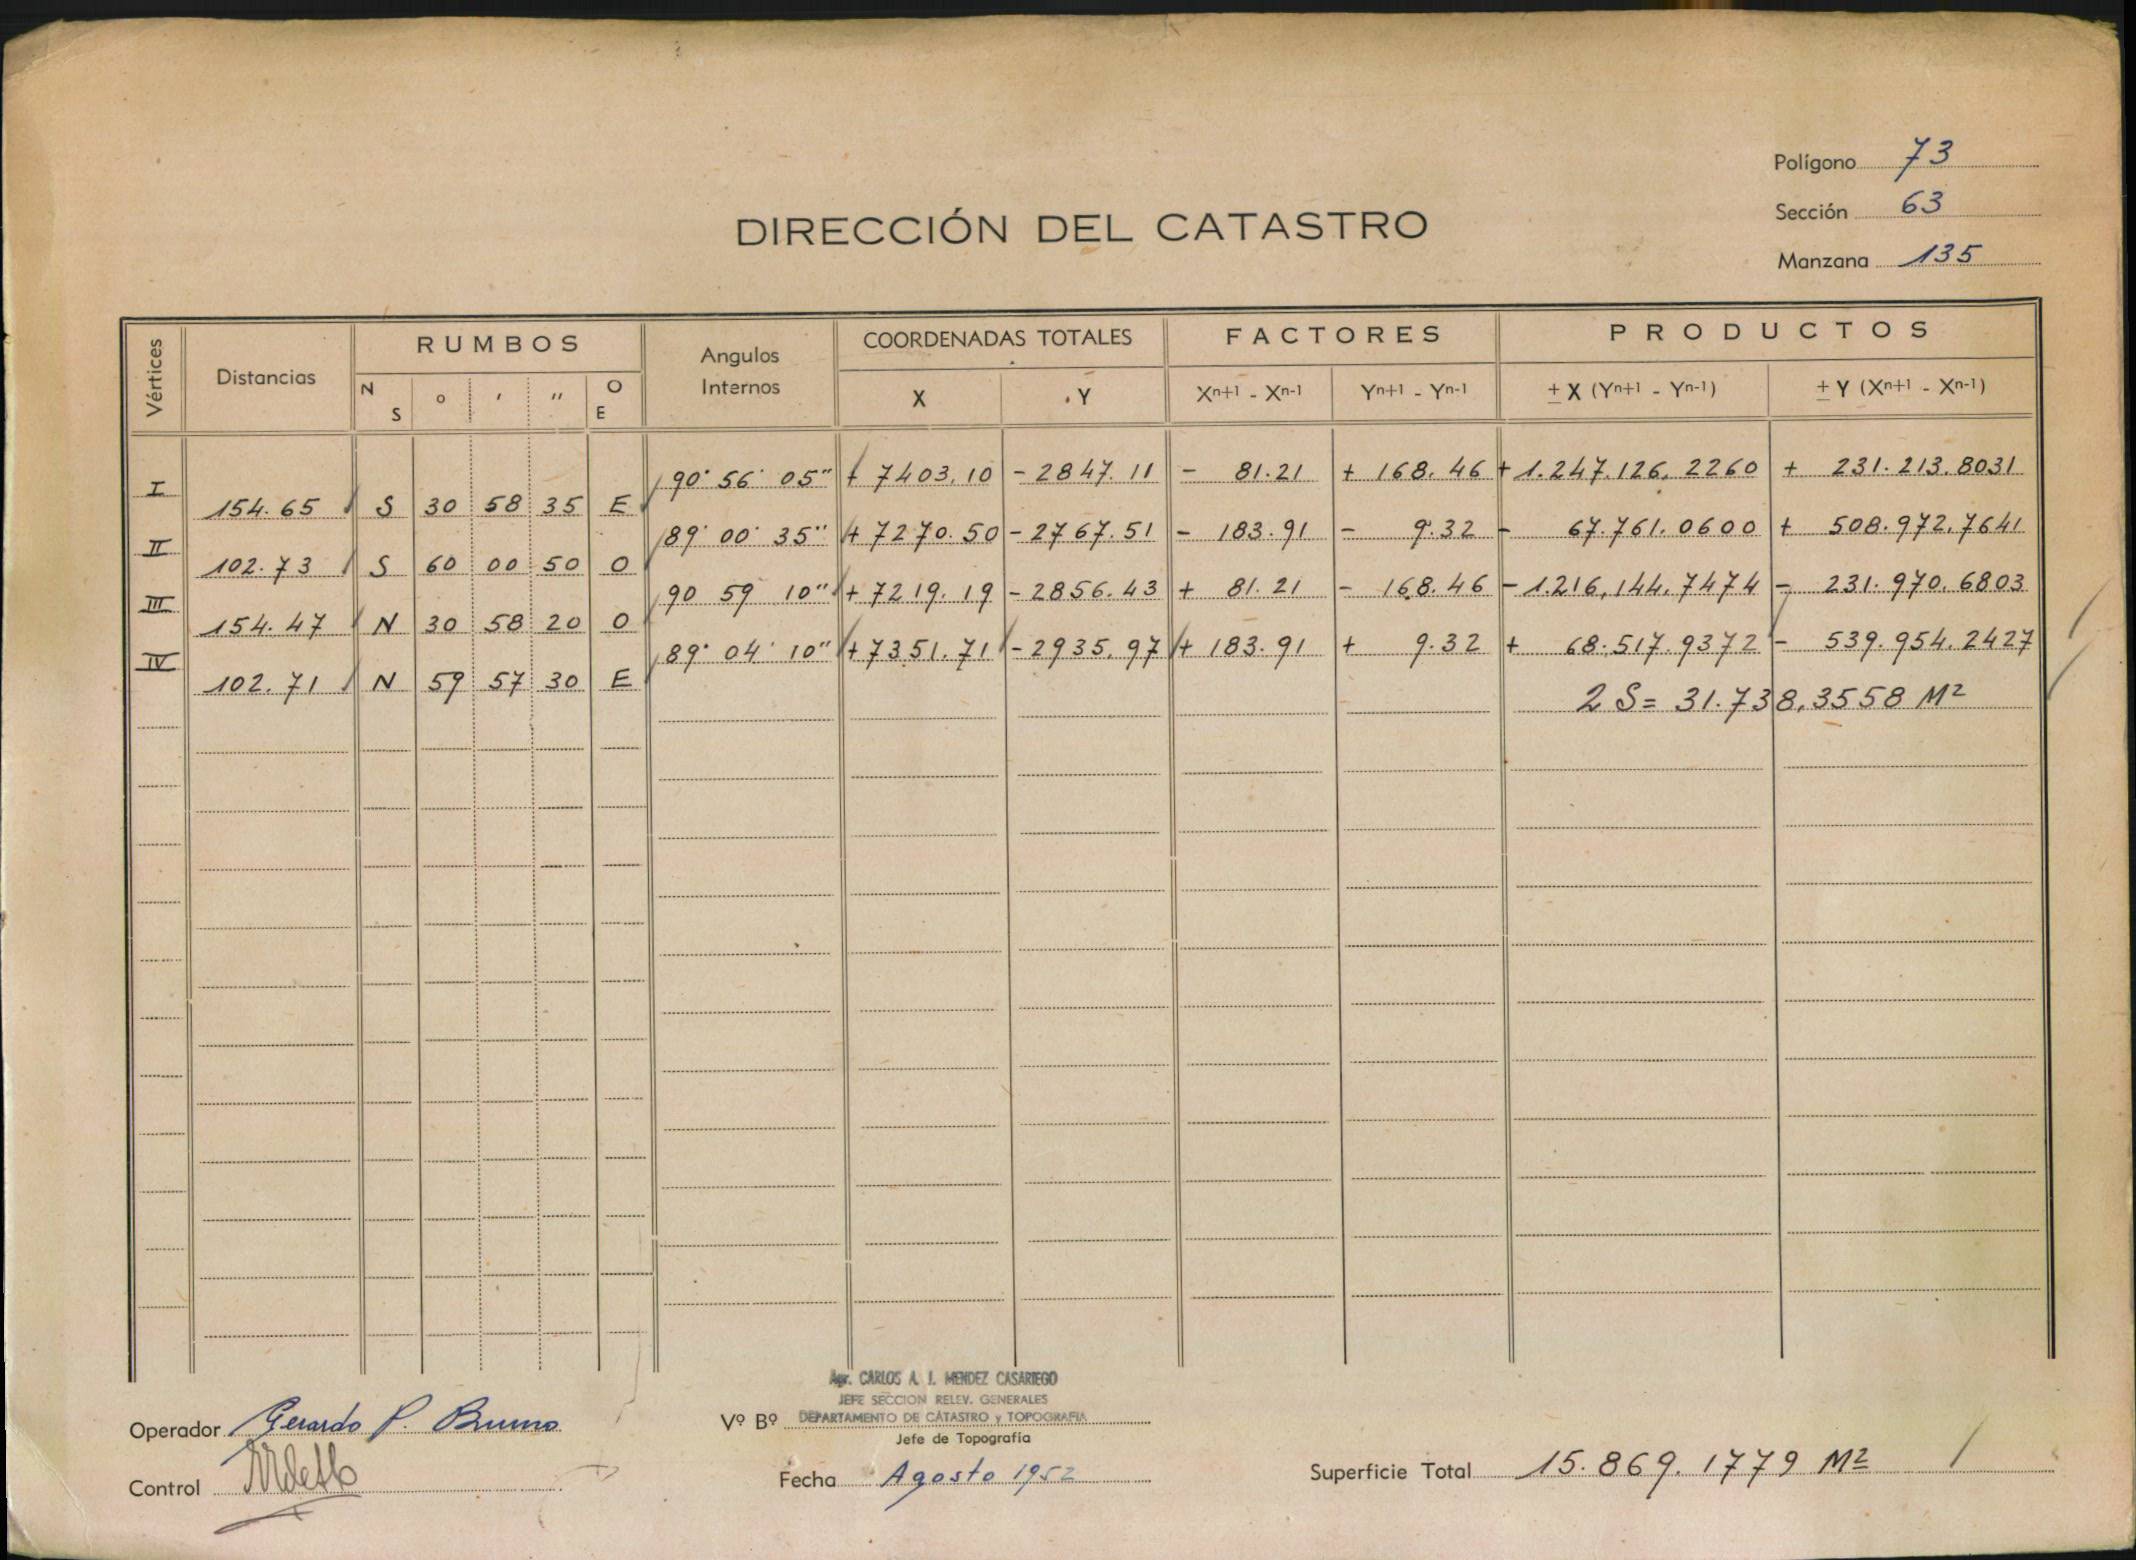 Polígono 73
Sección 63
DIRECCIÓN DEL CATASTRO
Manzana 135
Vértices Distancias RUMBOS Angulos Internos COORDENADAS TOTALES FACTORES PRODUCTOS
N S ° ′ ″ O E X Y Xn+1 - Xn-1 Yn+1 - Yn-1 ± X (Yn+1 - Yn-1) ± Y (Xn+1 - Xn-1)
I 90° 56' 05" + 7403.10 - 2847.11 - 81.21 + 168.46 + 1.247.126.2260 + 231.213.8031
154.65 S 30 58 35 E
II 89° 00' 35" + 7270.50 - 2767.51 - 183.91 - 9.32 - 67.761.0600 + 508.972.7641
102.73 S 60 00 50 O
III 90 59 10" + 7219.19 - 2856.43 + 81.21 - 168.46 - 1.216.144.7474 - 231.970.6803
154.47 N 30 58 20 O
IV 89° 04' 10" + 7351.71 - 2935.97 + 183.91 + 9.32 + 68.517.9372 - 539.954.2427
102.71 N 59 57 30 E
2 S = 31.738,3558 M²
Agr. CARLOS A. I. MENDEZ CASARIEGO
JEFE SECCION RELEV. GENERALES
Operador Gerardo P. Bruno Vº Bº DEPARTAMENTO DE CATASTRO y TOPOGRAFIA
Jefe de Topografía
Control Fecha Agosto 1952 Superficie Total 15.869.1779 M²